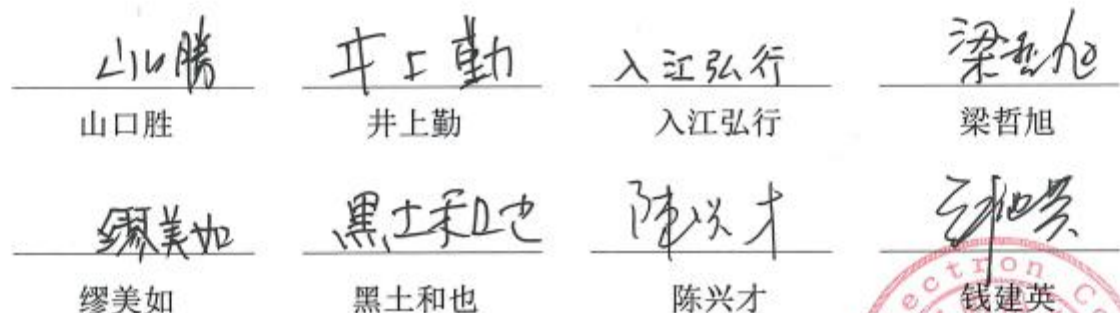 山口勝 井上勤 入江弘行 梁哲旭
山口胜 井上勤 入江弘行 梁哲旭
缪美如 黒土和也 陈兴才
缪美如 黑土和也 陈兴才 钱建英
ectron Co